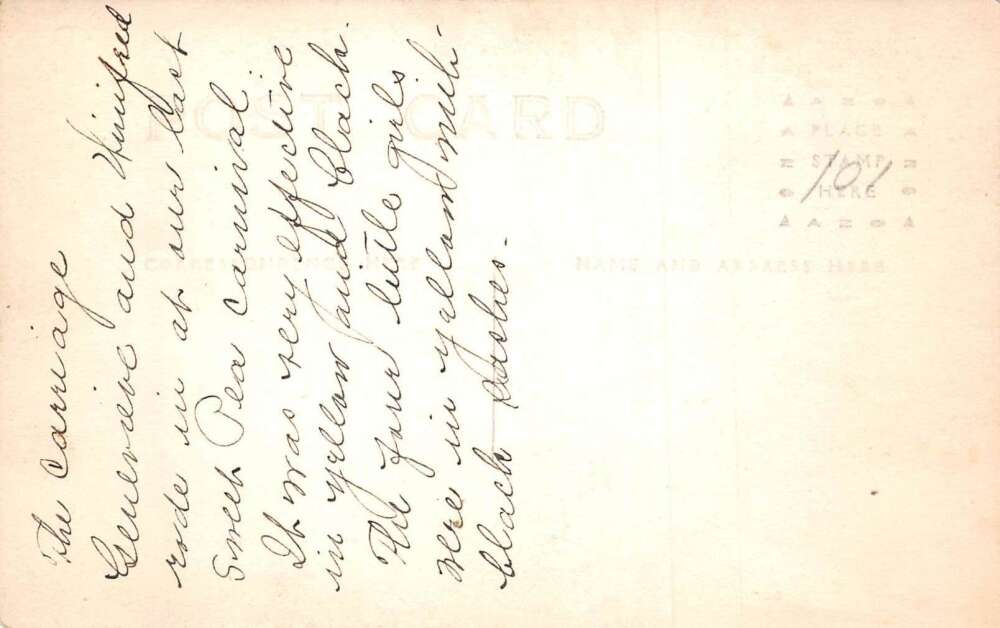 The Carriage
Genevieve and Winifred
rode in at our last
Sweet Pea Carnival
It was very effective
in yellow and black.
The four little girls
were in yellow with
black sashes.
POST CARD
CORRESPONDENCE HERE
NAME AND ADDRESS HERE
AZO
PLACE
STAMP
HERE
AZO
101